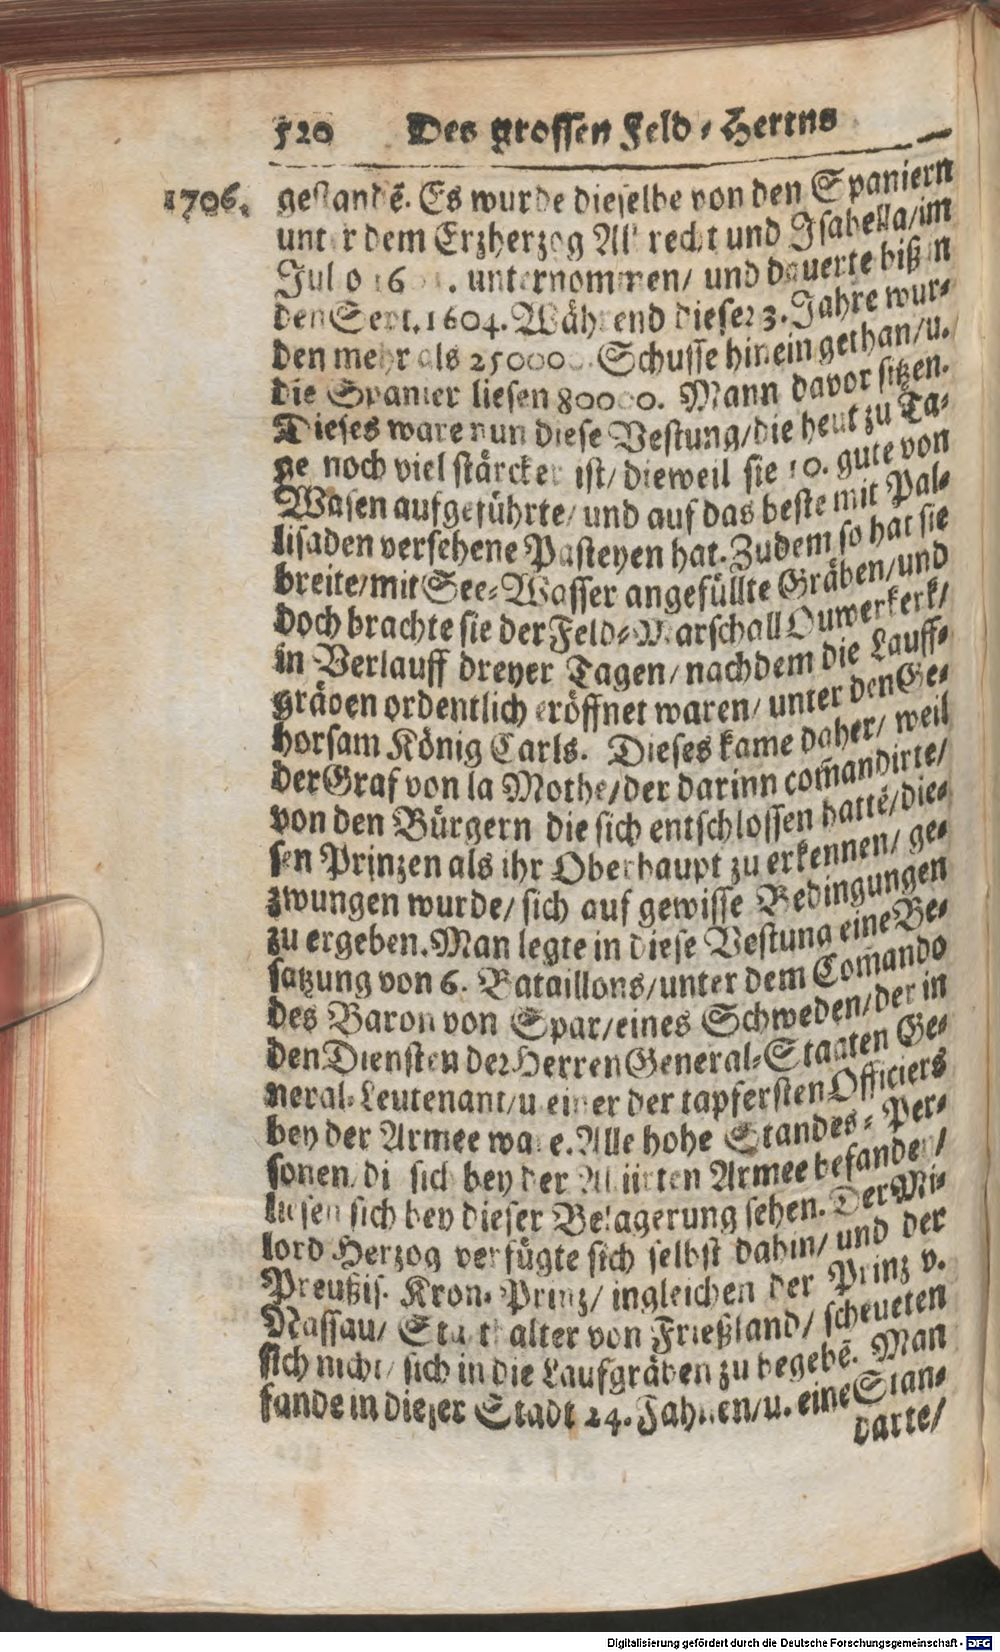 520 Des grossen Feld-Herrns
1706. gestandē. Es wurde dieselbe von den Spaniern
unter dem Erzherzog Albrecht und Isabella/im
Julio unternommen/ und dauerte biß in
den Sept. 1604. Während dieser 3. Jahre wur-
den mehr als 250000. Schusse hinein gethan/u.
die Spanier liesen 80000. Mann davor sitzen.
Dieses ware nun diese Vestung/die heut zu Ta-
ge noch viel stärcker ist/ dieweil sie 10. gute von
Wasen aufgeführte/ und auf das beste mit Pal-
lisaden versehene Pasteyen hat. Zudem so hat sie
breite/mit See-Wasser angefüllte Gräben/und
doch brachte sie der Feld-Marschall Ouwerkerk/
in Verlauff dreyer Tagen/ nachdem die Lauff-
gräben ordentlich eröffnet waren/ unter den Ge-
horsam König Carls. Dieses kame daher/ weil
der Graf von la Mothe/der darinn com̄andirte/
von den Bürgern die sich entschlossen hattē/die-
sen Prinzen als ihr Oberhaupt zu erkennen/ ge-
zwungen wurde/ sich auf gewisse Bedingungen
zu ergeben. Man legte in diese Vestung eine Be-
satzung von 6. Bataillons/unter dem Com̄ando
des Baron von Spar/eines Schweden/der in
den Diensten der Herren General-Staaten Ge-
neral-Leutenant/u einer der tapfersten Officiers
bey der Armee ware. Alle hohe Standes-Per-
sonen/ die sich bey der Alliirten Armee befanden/
liesen sich bey dieser Belagerung sehen. Der Mi-
lord Herzog verfügte sich selbst dahin/ und der
Preußis. Kron-Prinz/ ingleichen der Prinz v.
Nassau/ Statthalter von Frießland/ scheueten
sich nicht/ sich in die Laufgräben zu begebē. Man
fande in dieser Stadt 24. Fahnen/u. eine Stan-
darte/
Digitalisierung gefördert durch die Deutsche Forschungsgemeinschaft - DFG